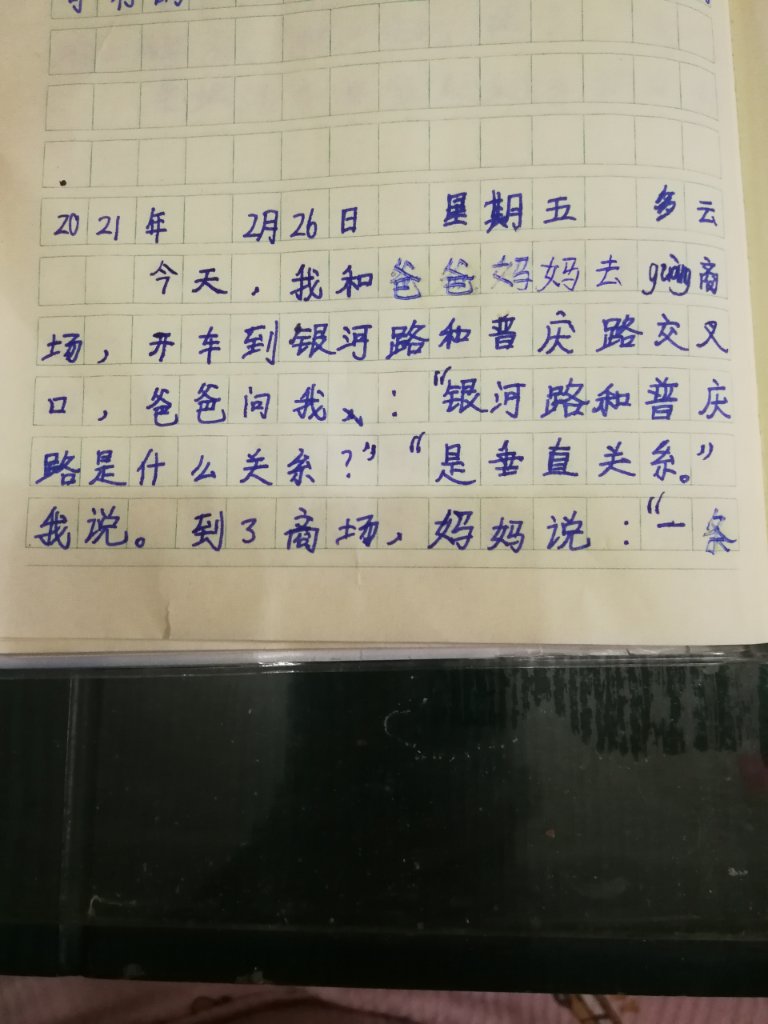 2021年 2月26日 星期五 多云
今天，我和爸爸妈妈去guàng商
场，开车到银河路和普庆路交叉
口，爸爸问我：“银河路和普庆
路是什么关系？”“是垂直关系。”
我说。到了商场，妈妈说：“一条